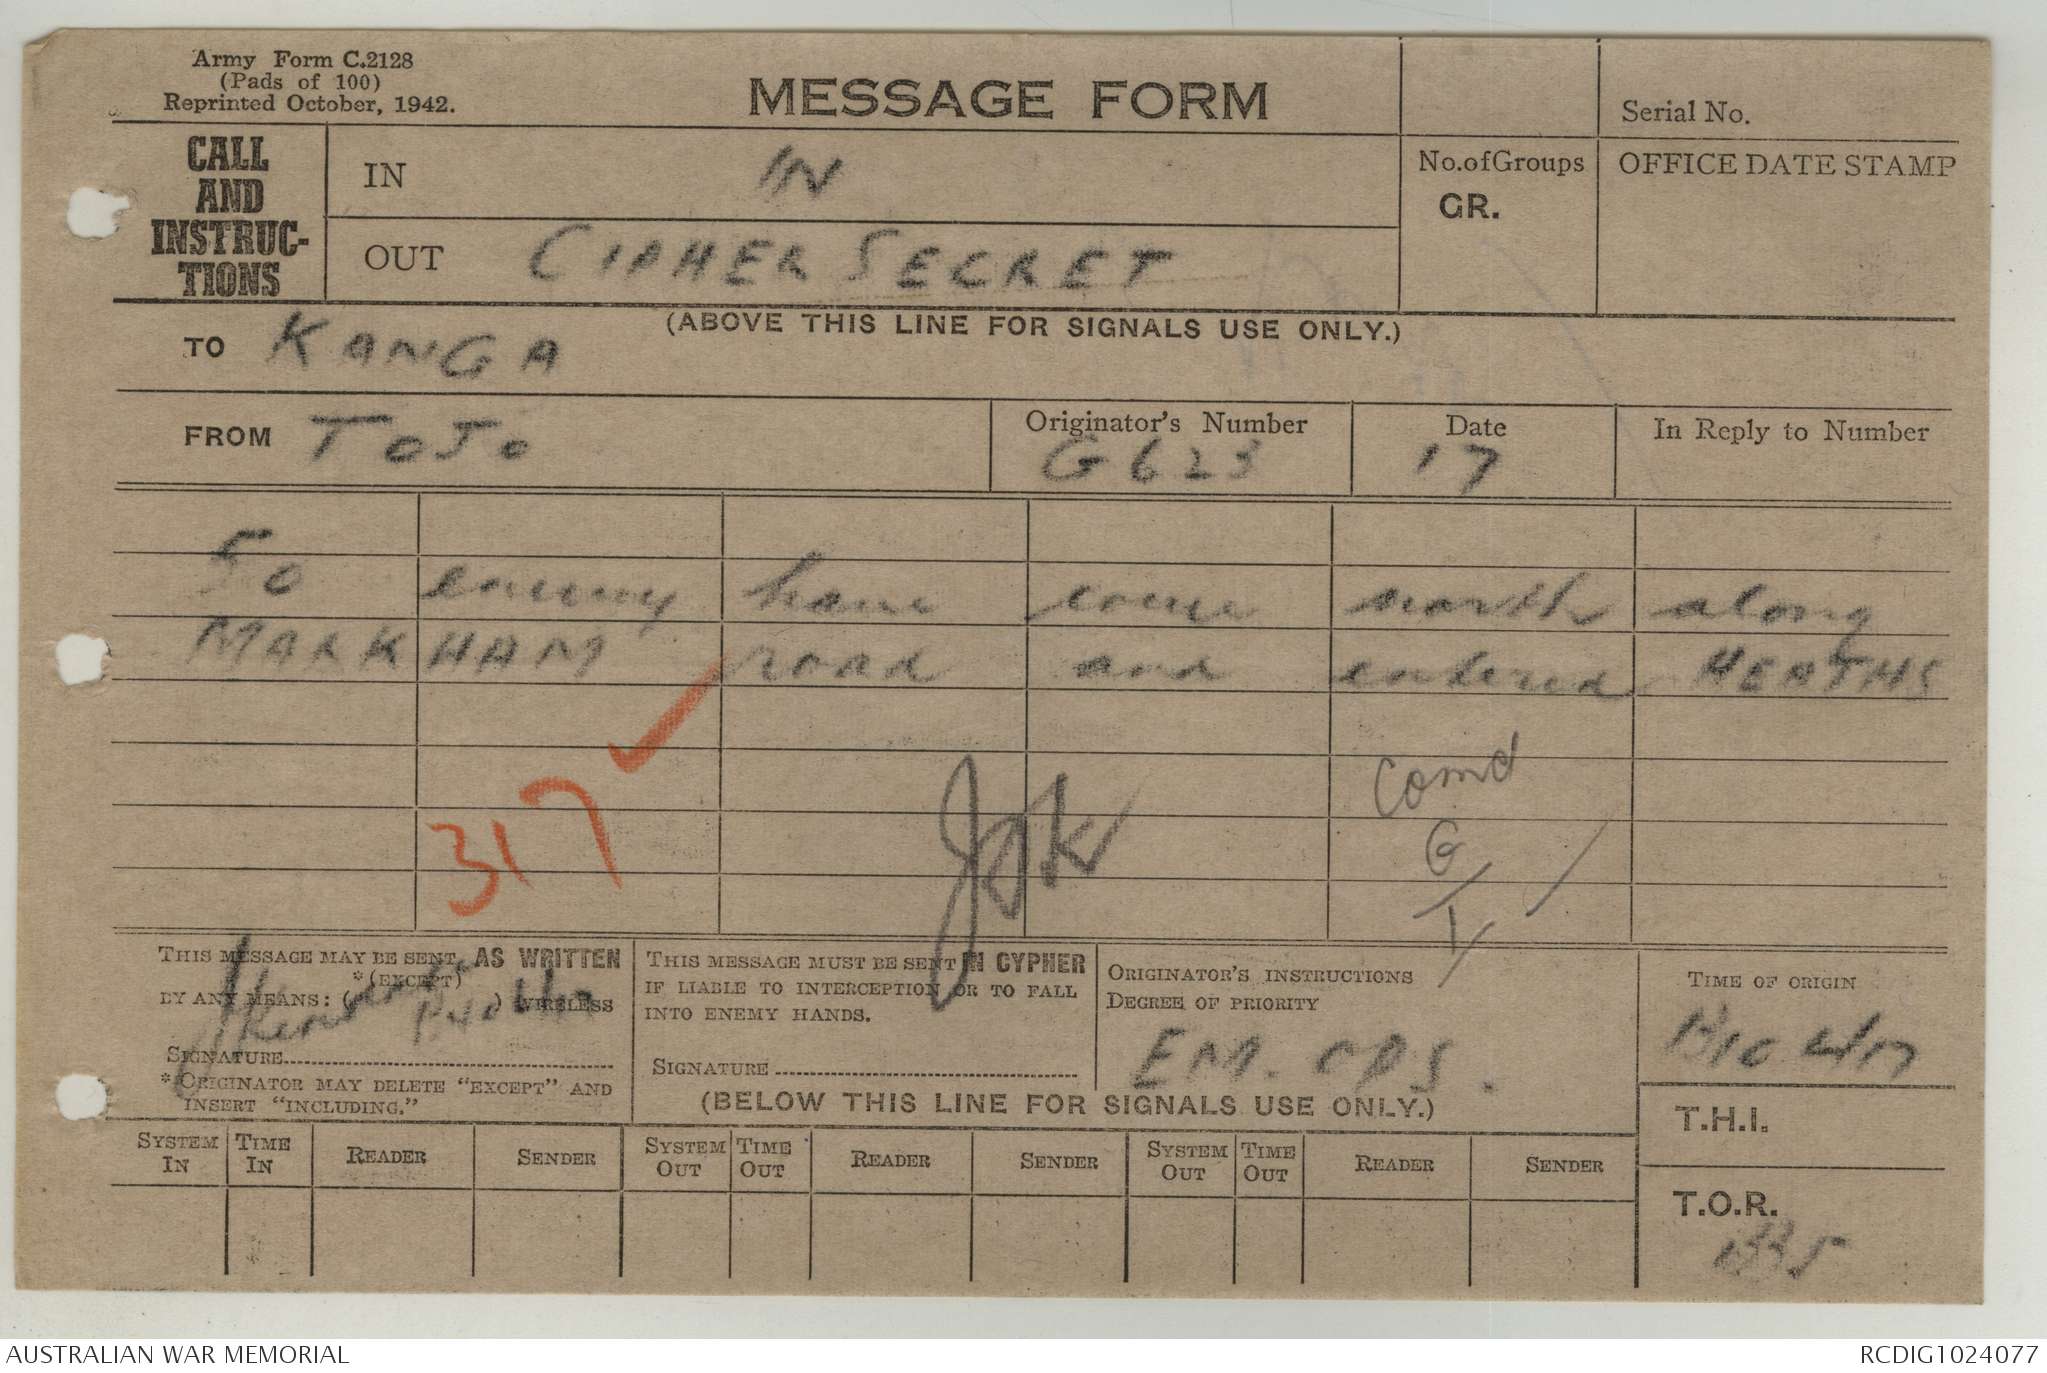 Army Form C.2128
(Pads of 100)
Reprinted October, 1942.
MESSAGE FORM
Serial No.
CALL
AND
INSTRUC-
TIONS
IN IN
No. of Groups
GR.
OFFICE DATE STAMP
OUT CIPHER SECRET
(ABOVE THIS LINE FOR SIGNALS USE ONLY.)
TO KANGA
FROM TOJO
Originator's Number
G 623
Date
17
In Reply to Number
50 enemy have come north along
MARKHAM road and entered HEATHS
317
Comd
G
1
THIS MESSAGE MAY BE SENT AS WRITTEN
*(EXCEPT)
BY ANY MEANS: ( ) WIRELESS
SIGNATURE
*ORIGINATOR MAY DELETE "EXCEPT" AND
INSERT "INCLUDING."
THIS MESSAGE MUST BE SENT IN CYPHER
IF LIABLE TO INTERCEPTION OR TO FALL
INTO ENEMY HANDS.
SIGNATURE
ORIGINATOR'S INSTRUCTIONS
DEGREE OF PRIORITY
EM. OPS.
TIME OF ORIGIN
(BELOW THIS LINE FOR SIGNALS USE ONLY.)
T.H.I.
SYSTEM IN TIME IN READER SENDER SYSTEM OUT TIME OUT READER SENDER SYSTEM OUT TIME OUT READER SENDER
T.O.R.
AUSTRALIAN WAR MEMORIAL
RCDIG1024077